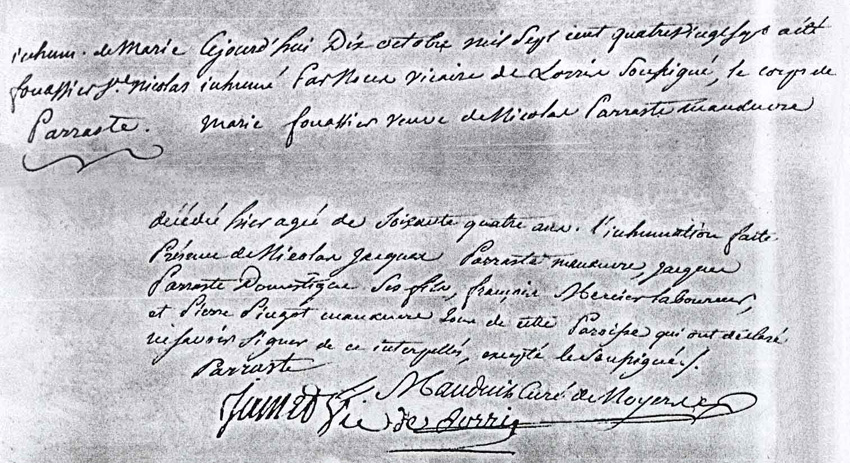 inhum. de Marie Cejourd'hui Dix octobre mil Sept cent quatrevingt sept a été
fouassier Ve nicolas inhumé Par Nous vicaire de Lorris Soussigné, le corps de
Parraste. Marie fouassier veuve de Nicolas Parraste manœuvre
décédé hier agée de Soixante quatre ans. l'inhumation faite
Présence de Nicolas Jacques Parraste manœuvre, Jacques
Parraste Domestique Ses fils, françois Mercier laboureur,
et Pierre Pingot manœuvre tous de cette Paroisse qui ont déclaré
ne savoir Signer de ce interpellés, excepté les Soussignés.
Parraste
Mauduit Curé de Noyers
Jamet Vic de Lorris